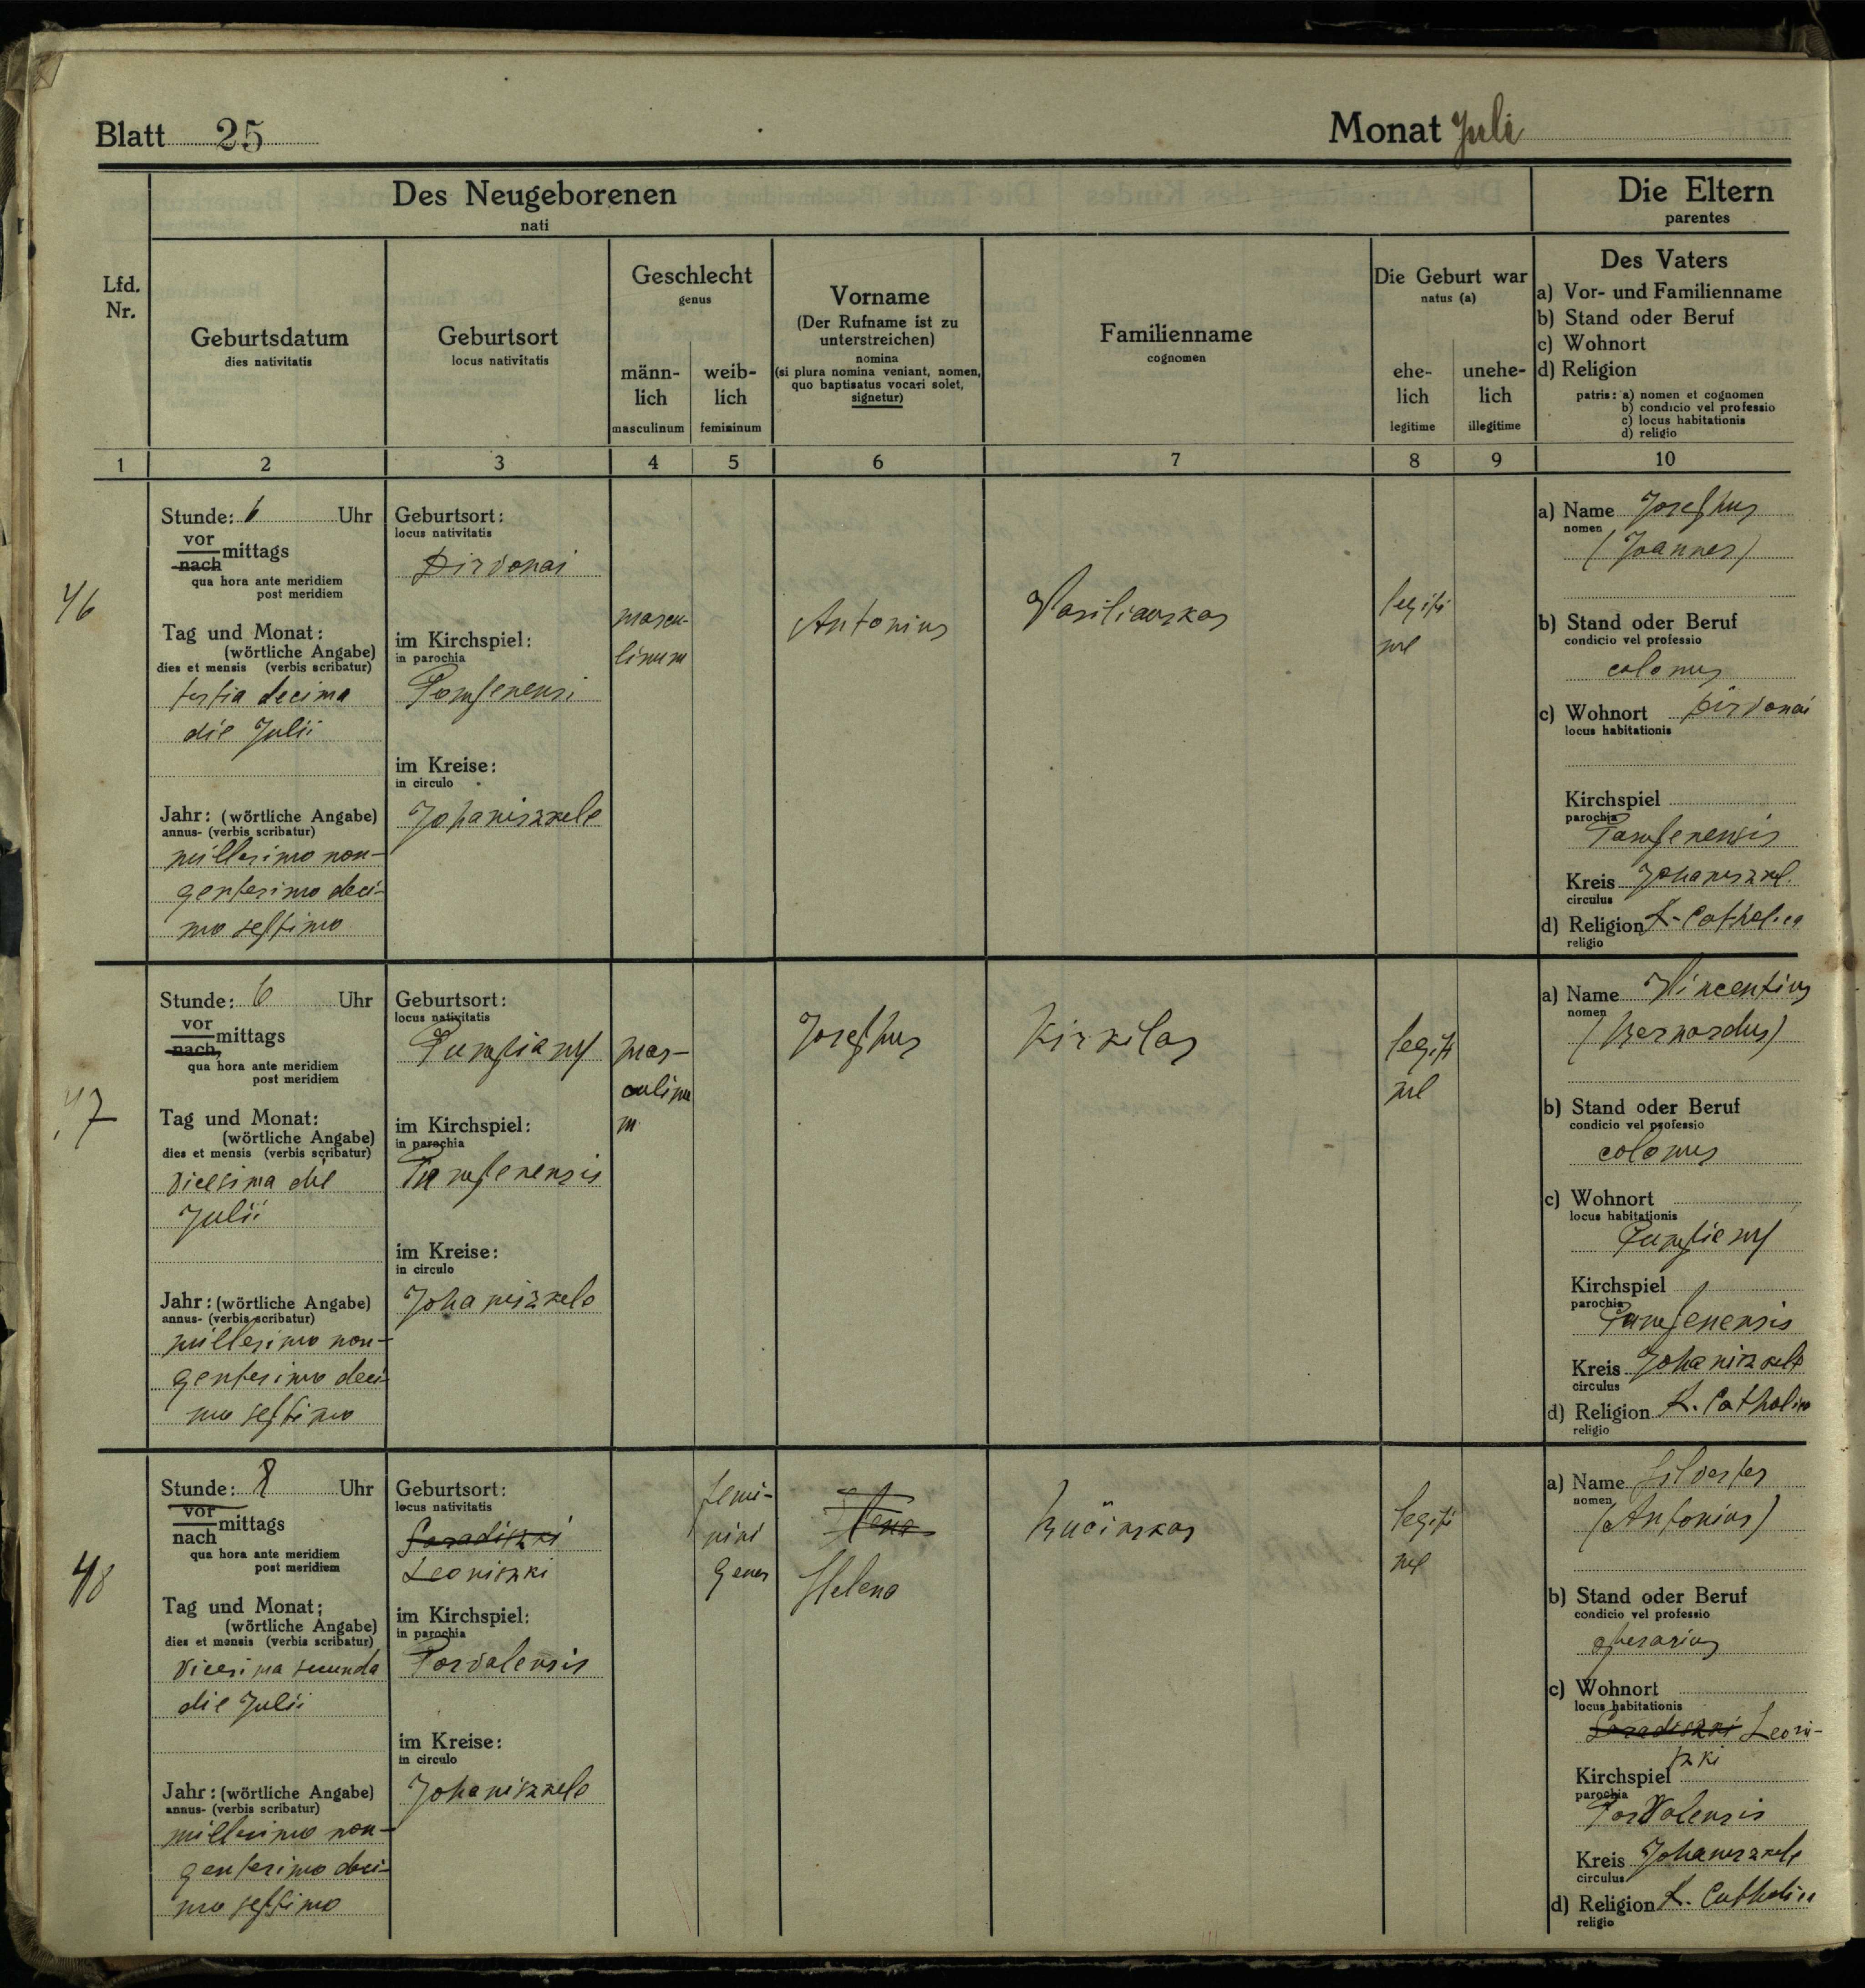 Blatt 25
Monat Juli
Des Neugeborenen
nati
Die Eltern
parentes
Lfd.
Nr.
Geburtsdatum
dies nativitatis
Geburtsort
locus nativitatis
Geschlecht
genus
männ-
lich
masculinum
weib-
lich
femininum
Vorname
(Der Rufname ist zu
unterstreichen)
nomina
(si plura nomina veniant, nomen,
quo baptisatus vocari solet,
signetur)
Familienname
cognomen
Die Geburt war
natus (a)
ehe-
lich
legitime
unehe-
lich
illegitime
Des Vaters
a) Vor- und Familienname
b) Stand oder Beruf
c) Wohnort
d) Religion
patris: a) nomen et cognomen
b) condicio vel professio
c) locus habitationis
d) religio
1 2 3 4 5 6 7 8 9 10
46
Stunde: 6 Uhr
vor
nach mittags
qua hora ante meridiem
post meridiem
Tag und Monat:
(wörtliche Angabe)
dies et mensis (verbis scribatur)
tertia decima
die Julii
Jahr: (wörtliche Angabe)
annus- (verbis scribatur)
millesimo non-
gentesimo deci-
mo septimo
Geburtsort:
locus nativitatis
Dirvonai
im Kirchspiel:
in parochia
Pompenensi
im Kreise:
in circulo
Johaniszkele
mascu-
linum
Antonius
Vasiliauskas
legiti
me
a) Name Josephus
nomen
(Joannes)
b) Stand oder Beruf
condicio vel professio
colonus
c) Wohnort Dirvonai
locus habitationis
Kirchspiel
parochia
Pompenensis
Kreis Johaniszkel.
circulus
d) Religion R. Catholica
religio
47
Stunde: 6 Uhr
vor
nach mittags
qua hora ante meridiem
post meridiem
Tag und Monat:
(wörtliche Angabe)
dies et mensis (verbis scribatur)
vicesima die
Julii
Jahr: (wörtliche Angabe)
annus- (verbis scribatur)
millesimo non-
gentesimo deci-
mo septimo
Geburtsort:
locus nativitatis
Pumpiany
im Kirchspiel:
in parochia
Pumpenensis
im Kreise:
in circulo
Johaniszkele
mas-
culinu
m
Josephus
Kirkilas
legiti
me
a) Name Vincentius
nomen
(Bernardus)
b) Stand oder Beruf
condicio vel professio
colonus
c) Wohnort
locus habitationis
Pumpiany
Kirchspiel
parochia
Pumpenensis
Kreis Johaniszkele
circulus
d) Religion R. Catholica
religio
48
Stunde: 8 Uhr
vor
nach mittags
qua hora ante meridiem
post meridiem
Tag und Monat:
(wörtliche Angabe)
dies et mensis (verbis scribatur)
vicesima secunda
die Julii
Jahr: (wörtliche Angabe)
annus- (verbis scribatur)
millesimo non-
gentesimo deci-
mo septimo
Geburtsort:
locus nativitatis
Leoniszki
im Kirchspiel:
in parochia
Posvolensis
im Kreise:
in circulo
Johaniszkele
femi-
nini
gener
Helena
Bučinskas
legiti
me
a) Name Silvester
nomen
(Antonius)
b) Stand oder Beruf
condicio vel professio
operarius
c) Wohnort
locus habitationis
Leoni-
szki
Kirchspiel
parochia
Posvolensis
Kreis Johaniszkele
circulus
d) Religion R. Catholica
religio